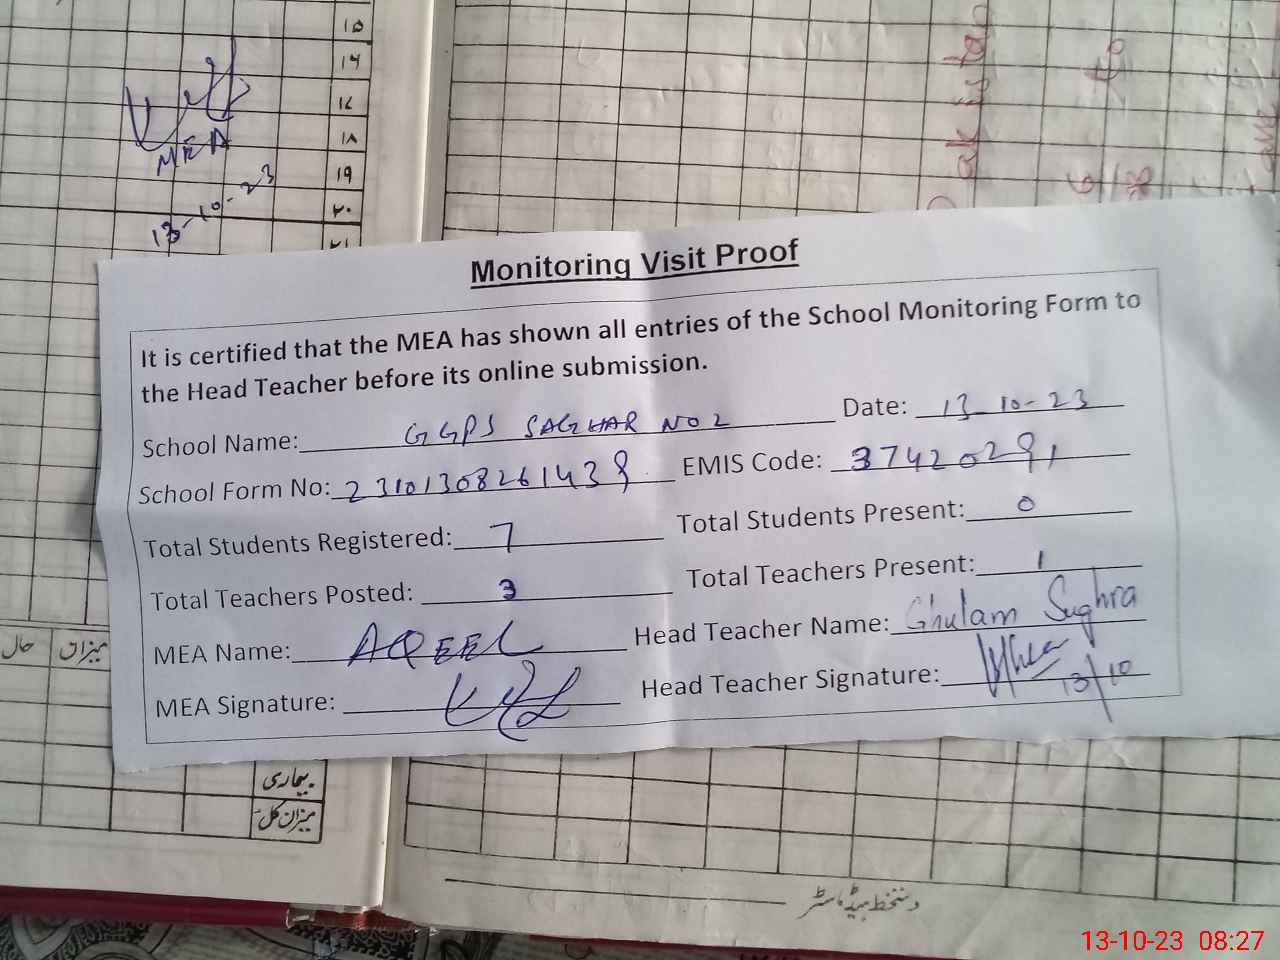 ۱۵
۱۶
۱۷
۱۸
۱۹
۲۰
۲۱
MEA
13-10-23
Monitoring Visit Proof
It is certified that the MEA has shown all entries of the School Monitoring Form to
the Head Teacher before its online submission.
School Name: GGPS SAGHAR NO 2 Date: 13-10-23
School Form No: 23101308261439 EMIS Code: 37420291
Total Students Registered: 7 Total Students Present: 0
Total Teachers Posted: 3 Total Teachers Present: 1
MEA Name: AQEEL Head Teacher Name: Ghulam Sughra
MEA Signature: Head Teacher Signature:
13/10
میزان حال
بیماری
میزان کل
دستخط ہیڈ ماسٹر
13-10-23 08:27